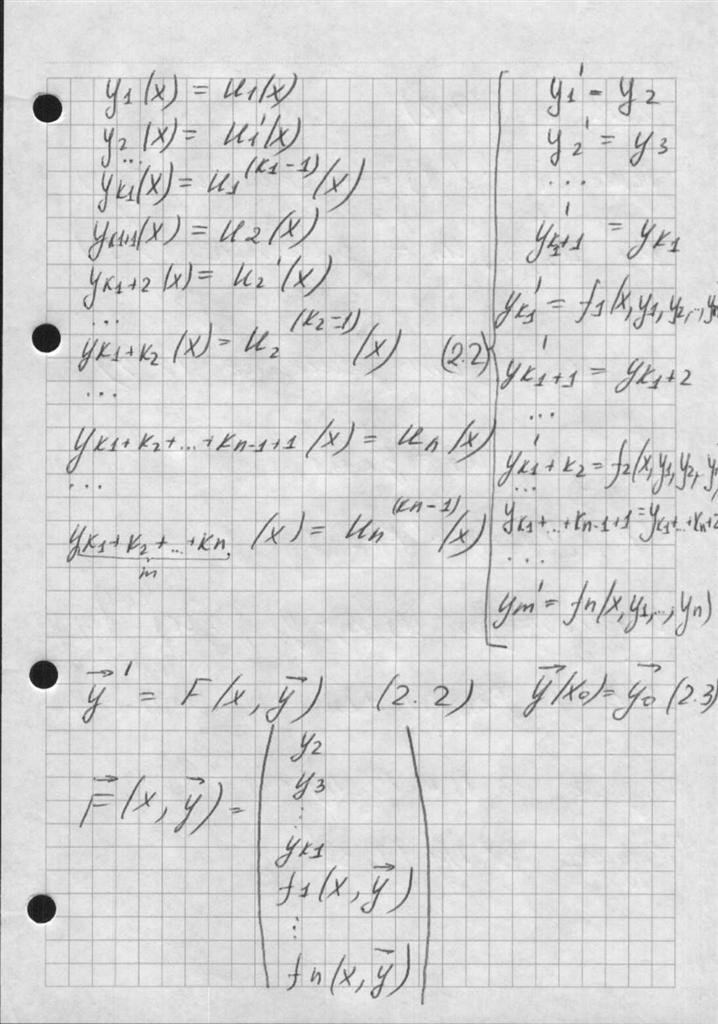 y1(x) = u1(x)
y2(x) = u1'(x)
...
yk1(x) = u1^(k1-1)(x)
yk1+1(x) = u2(x)
yk1+2(x) = u2'(x)
...
yk1+k2(x) = u2^(k2-1)(x)
...
yk1+k2+...+kn-1+1(x) = un(x)
...
yk1+k2+...+kn(x) = un^(kn-1)(x)
m
(2.2)
y1' = y2
y2' = y3
...
yk1+1' = yk1
yk1' = f1(x,y1,y2,..,y
yk1+1' = yk1+2
...
yk1+k2' = f2(x,y1,y2,..,y
...
yk1+...+kn-1+1' = yk1+...+kn+2
...
ym' = fn(x,y1,...,yn)
y⃗' = F(x, y⃗) (2.2) y⃗(x0) = y⃗0 (2.3)
F⃗(x, y⃗) =
y2
y3
⋮
yk1
f1(x, y⃗)
⋮
fn(x, y⃗)